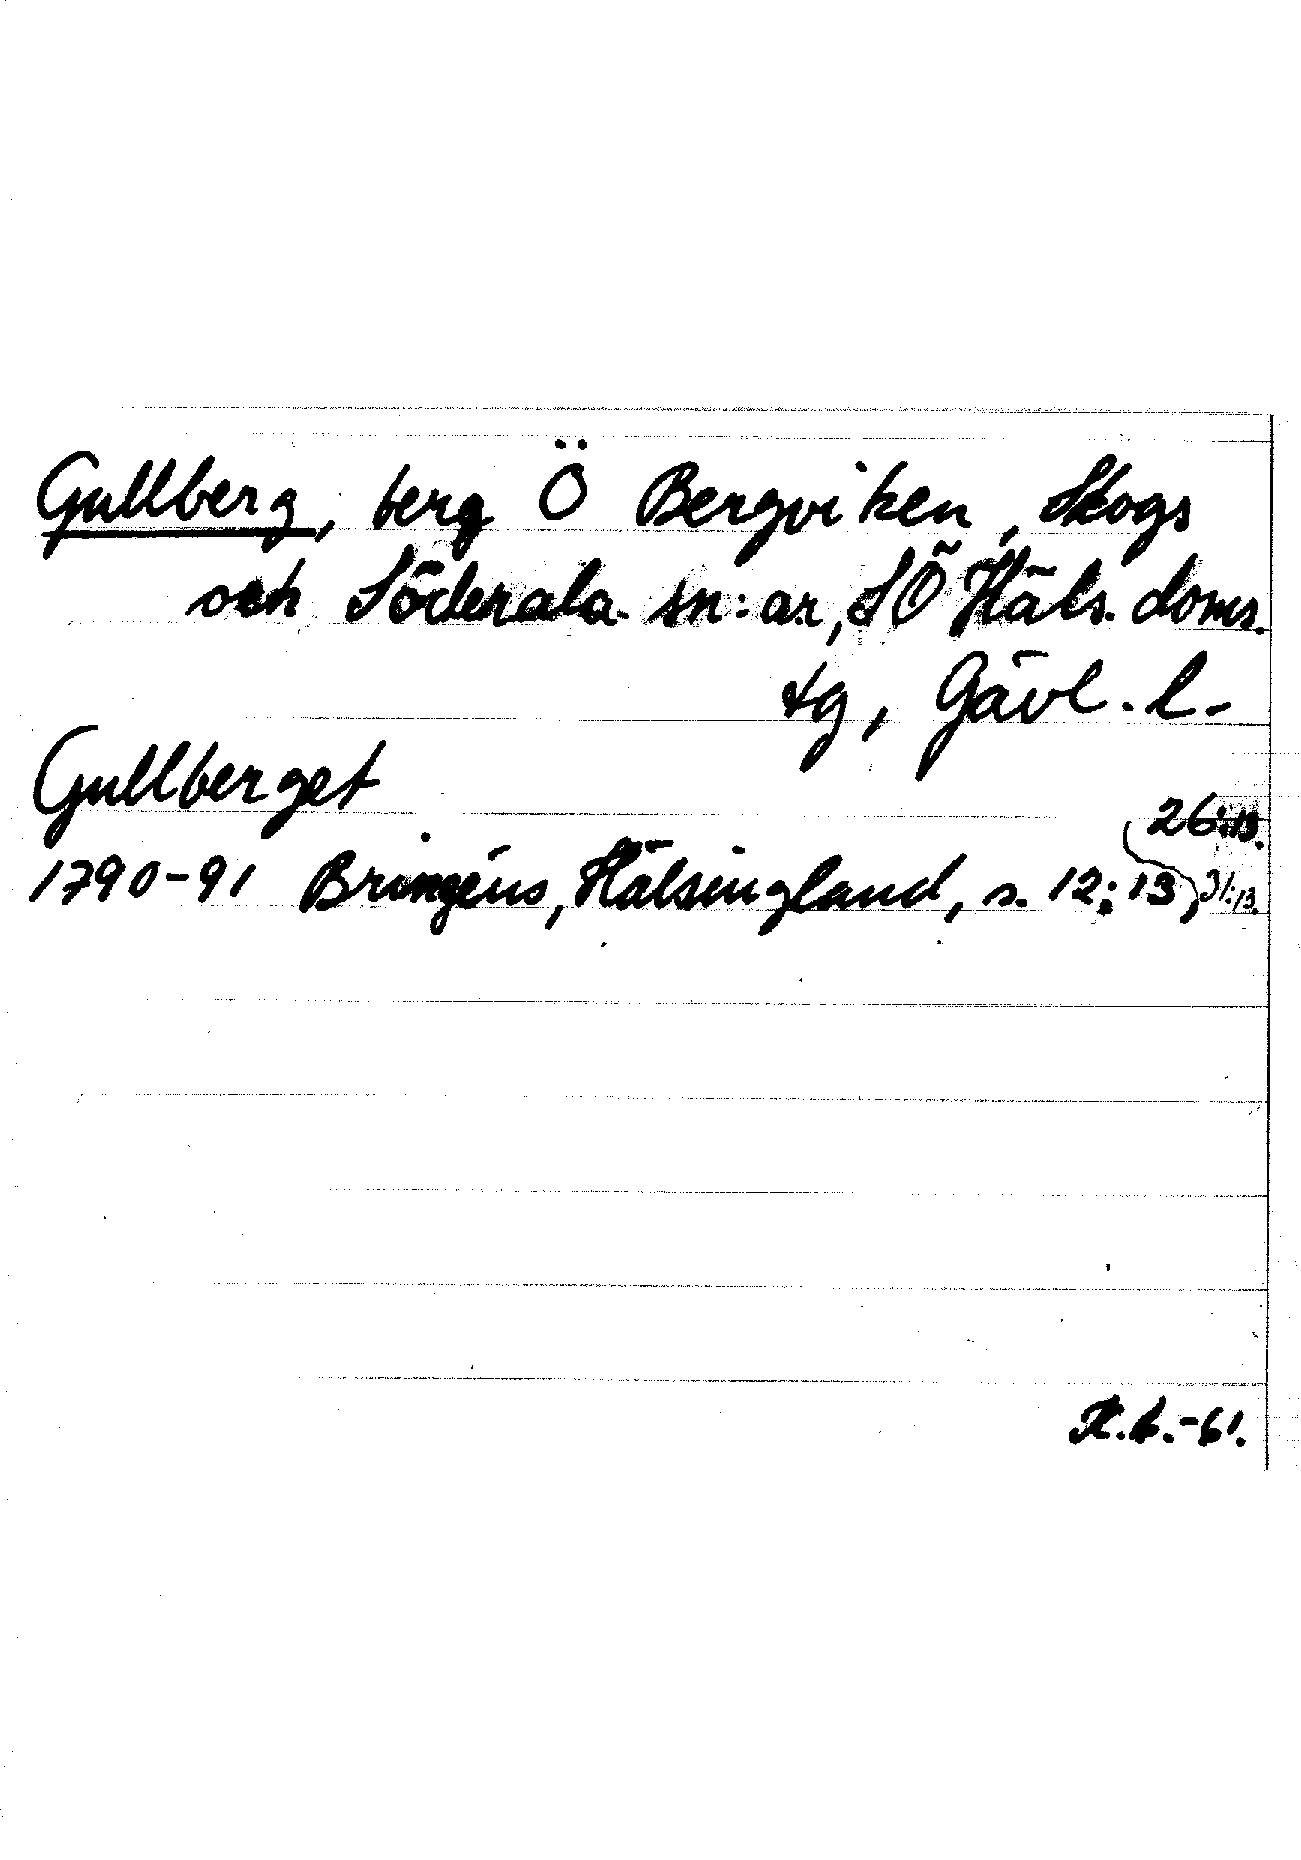 Gullberg, berg Ö Bergviken, Skogs
och Söderala sn:ar, SÖ Häls. doms.
tg, Gävl. l.
Gullberget
26:13.
1790-91 Bringéus, Hälsingland, s. 12:13, 31:13.
K.b.-61.